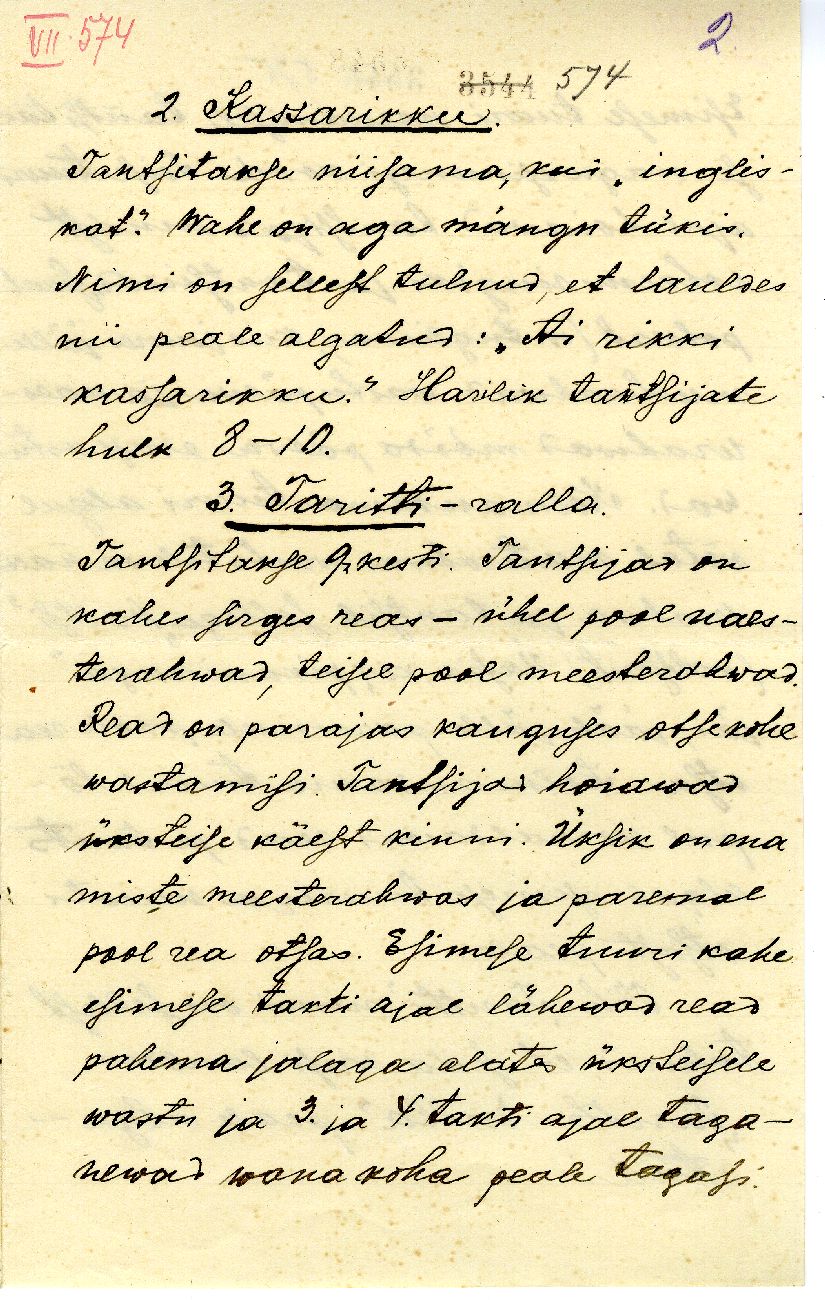 VII. 574
2
3544 574
2. Kassarikku.
Tantsitakse niisama, kui „inglis-
kat". Wahe on aga mängu tükis.
Nimi on sellest tulnud, et lauldes
nii peale algatud: „Ai rikki
kassarikku." Harilik tantsijate
hulk 8–10.
3. Taritti-ralla.
Tantsitakse 9, kesti. Tantsijad on
kahes sirges reas – ühel pool naes-
terahwad, teisel pool meesterahwad.
Read on parajas kauguses otsekohe
wastamisi. Tantsijad hoiawad
üksteise käest kinni. Üksik on ena
miste meesterahwas ja paremal
pool rea otsas. Esimese tuuri kahe
esimese takti ajal lähewad read
pahema jalaga alates üksteisele
wastu ja 3. ja 4. takti ajal taga-
newad wana koha peale tagasi.